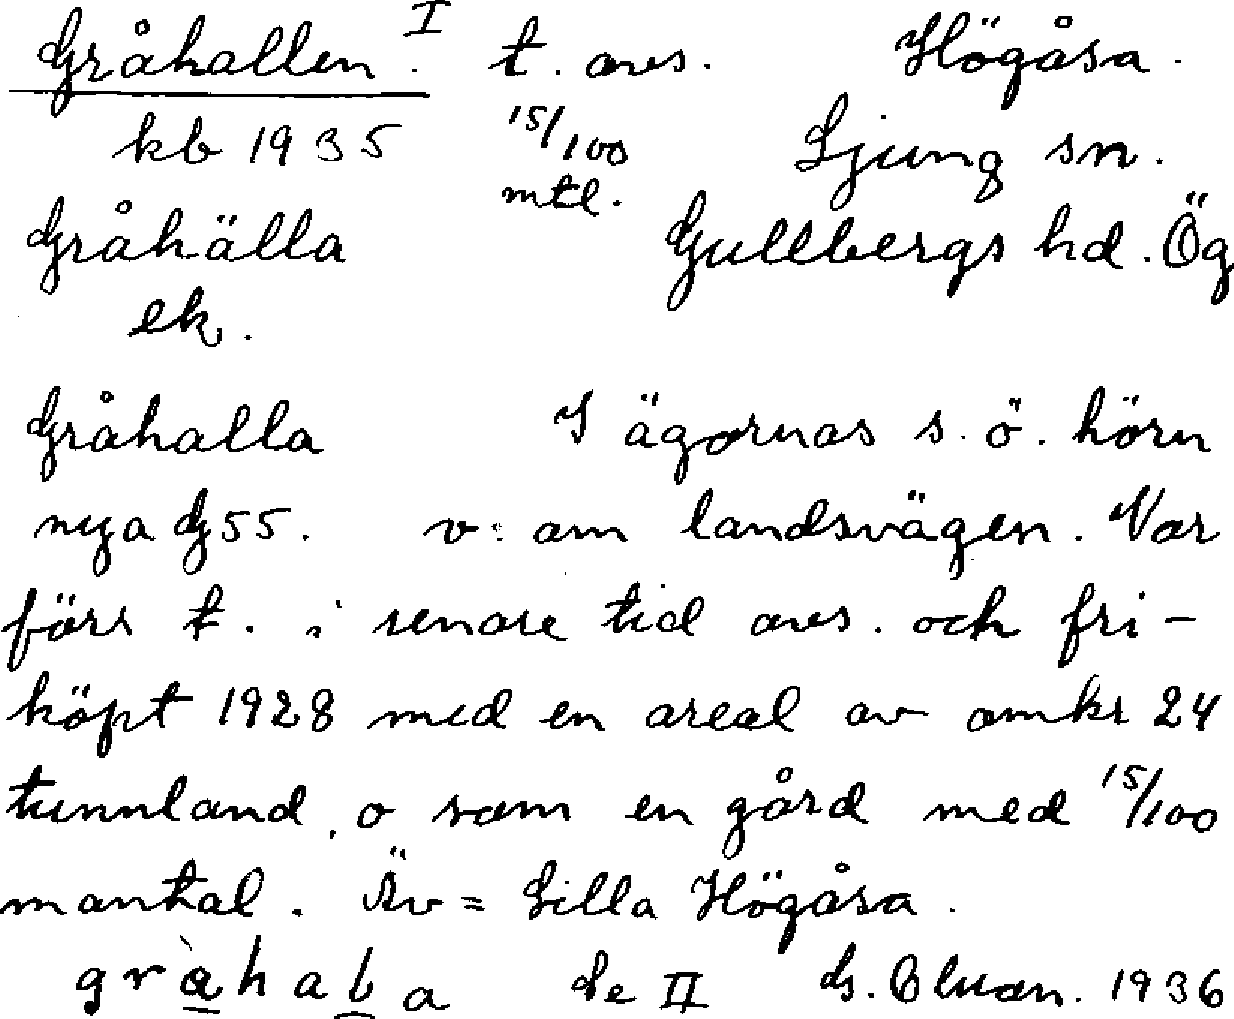 Gråhallen. I t. avs. Högåsa.
kb 1935 15/100 Ljung sn.
mtl.
Gråhälla Gullbergs hd. Ög
ek.
Gråhalla I ägornas s. ö. hörn
nya G 55. v: om landsvägen. Var
förr t. i senare tid avs. och fri-
köpt 1928 med en areal av omkr 24
tunnland, o som en gård med 15/100
mantal. Äv = Lilla Högåsa.
Se II G. 1936